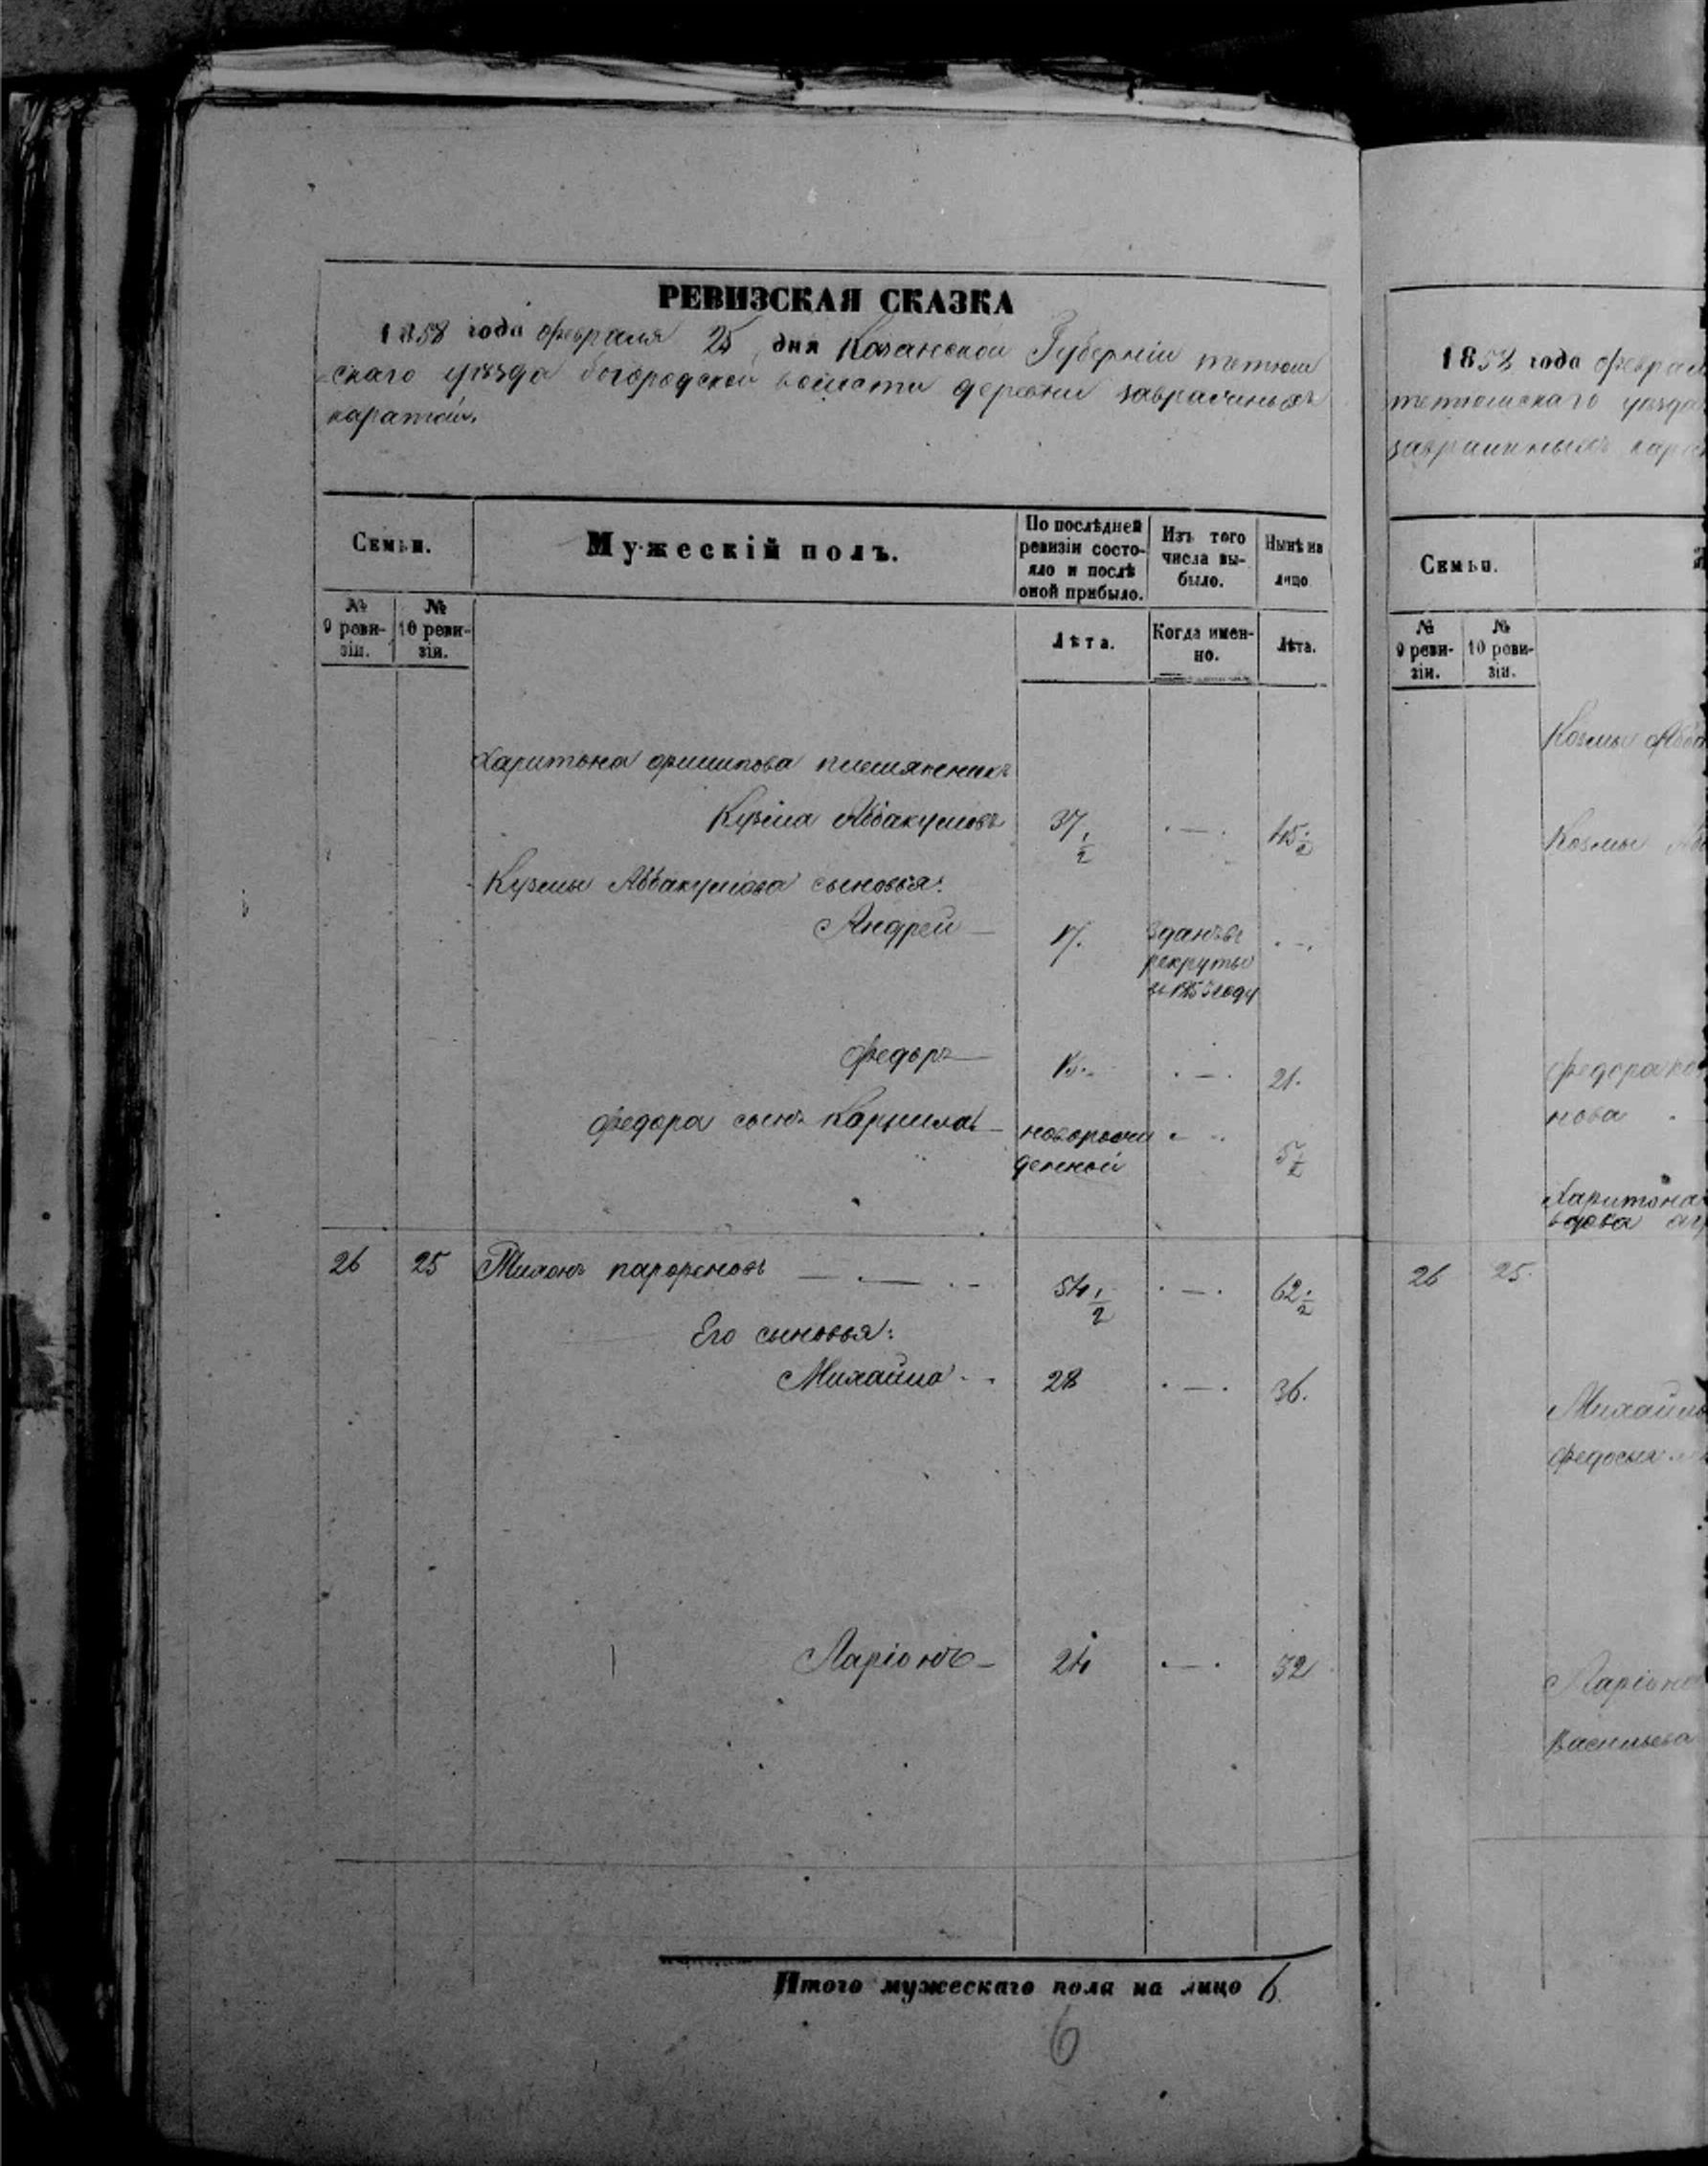 РЕВИЗСКАЯ СКАЗКА
1858 года февраля 25 дня Казанской Губерніи тетюш
скаго уѣзда богородской волости деревни заврасиныхъ
каратай.
Семьи.
Мужескій полъ.
По послѣдней ревизіи состояло и послѣ оной прибыло.
Изъ того числа выбыло.
Нынѣ на лицо
№ 9 ревизіи.
№ 10 ревизіи.
Лѣта.
Когда именно.
Лѣта.
Харитона племяненикъ
Кузма Аввакумовъ 37 1/2 · — · 45 1/2
Кузмы Аввакумова сыновья:
Андрей — 17. зданъ въ · — ·
рекруты
году
Федоръ — · — · 21.
Федора сынъ — новорож · — · 5 1/2
денной
26 25 Тихонъ парфеновъ — · — · — 54 1/2 · — · 62 1/2
Его сыновья:
Михайла · · 28 · — · 36.
Ларіонъ — 24 · — · 32
Итого мужескаго пола на лицо 6
6
1858 года феврал
тетюшскаго уѣзда
Семьи.
№ 9 ревизіи.
№ 10 ревизіи.
Козмы
Козмы
Федора
нова
Харитона
вдова
26 25.
Михайлы
Федосья
Ларіона
Васильева